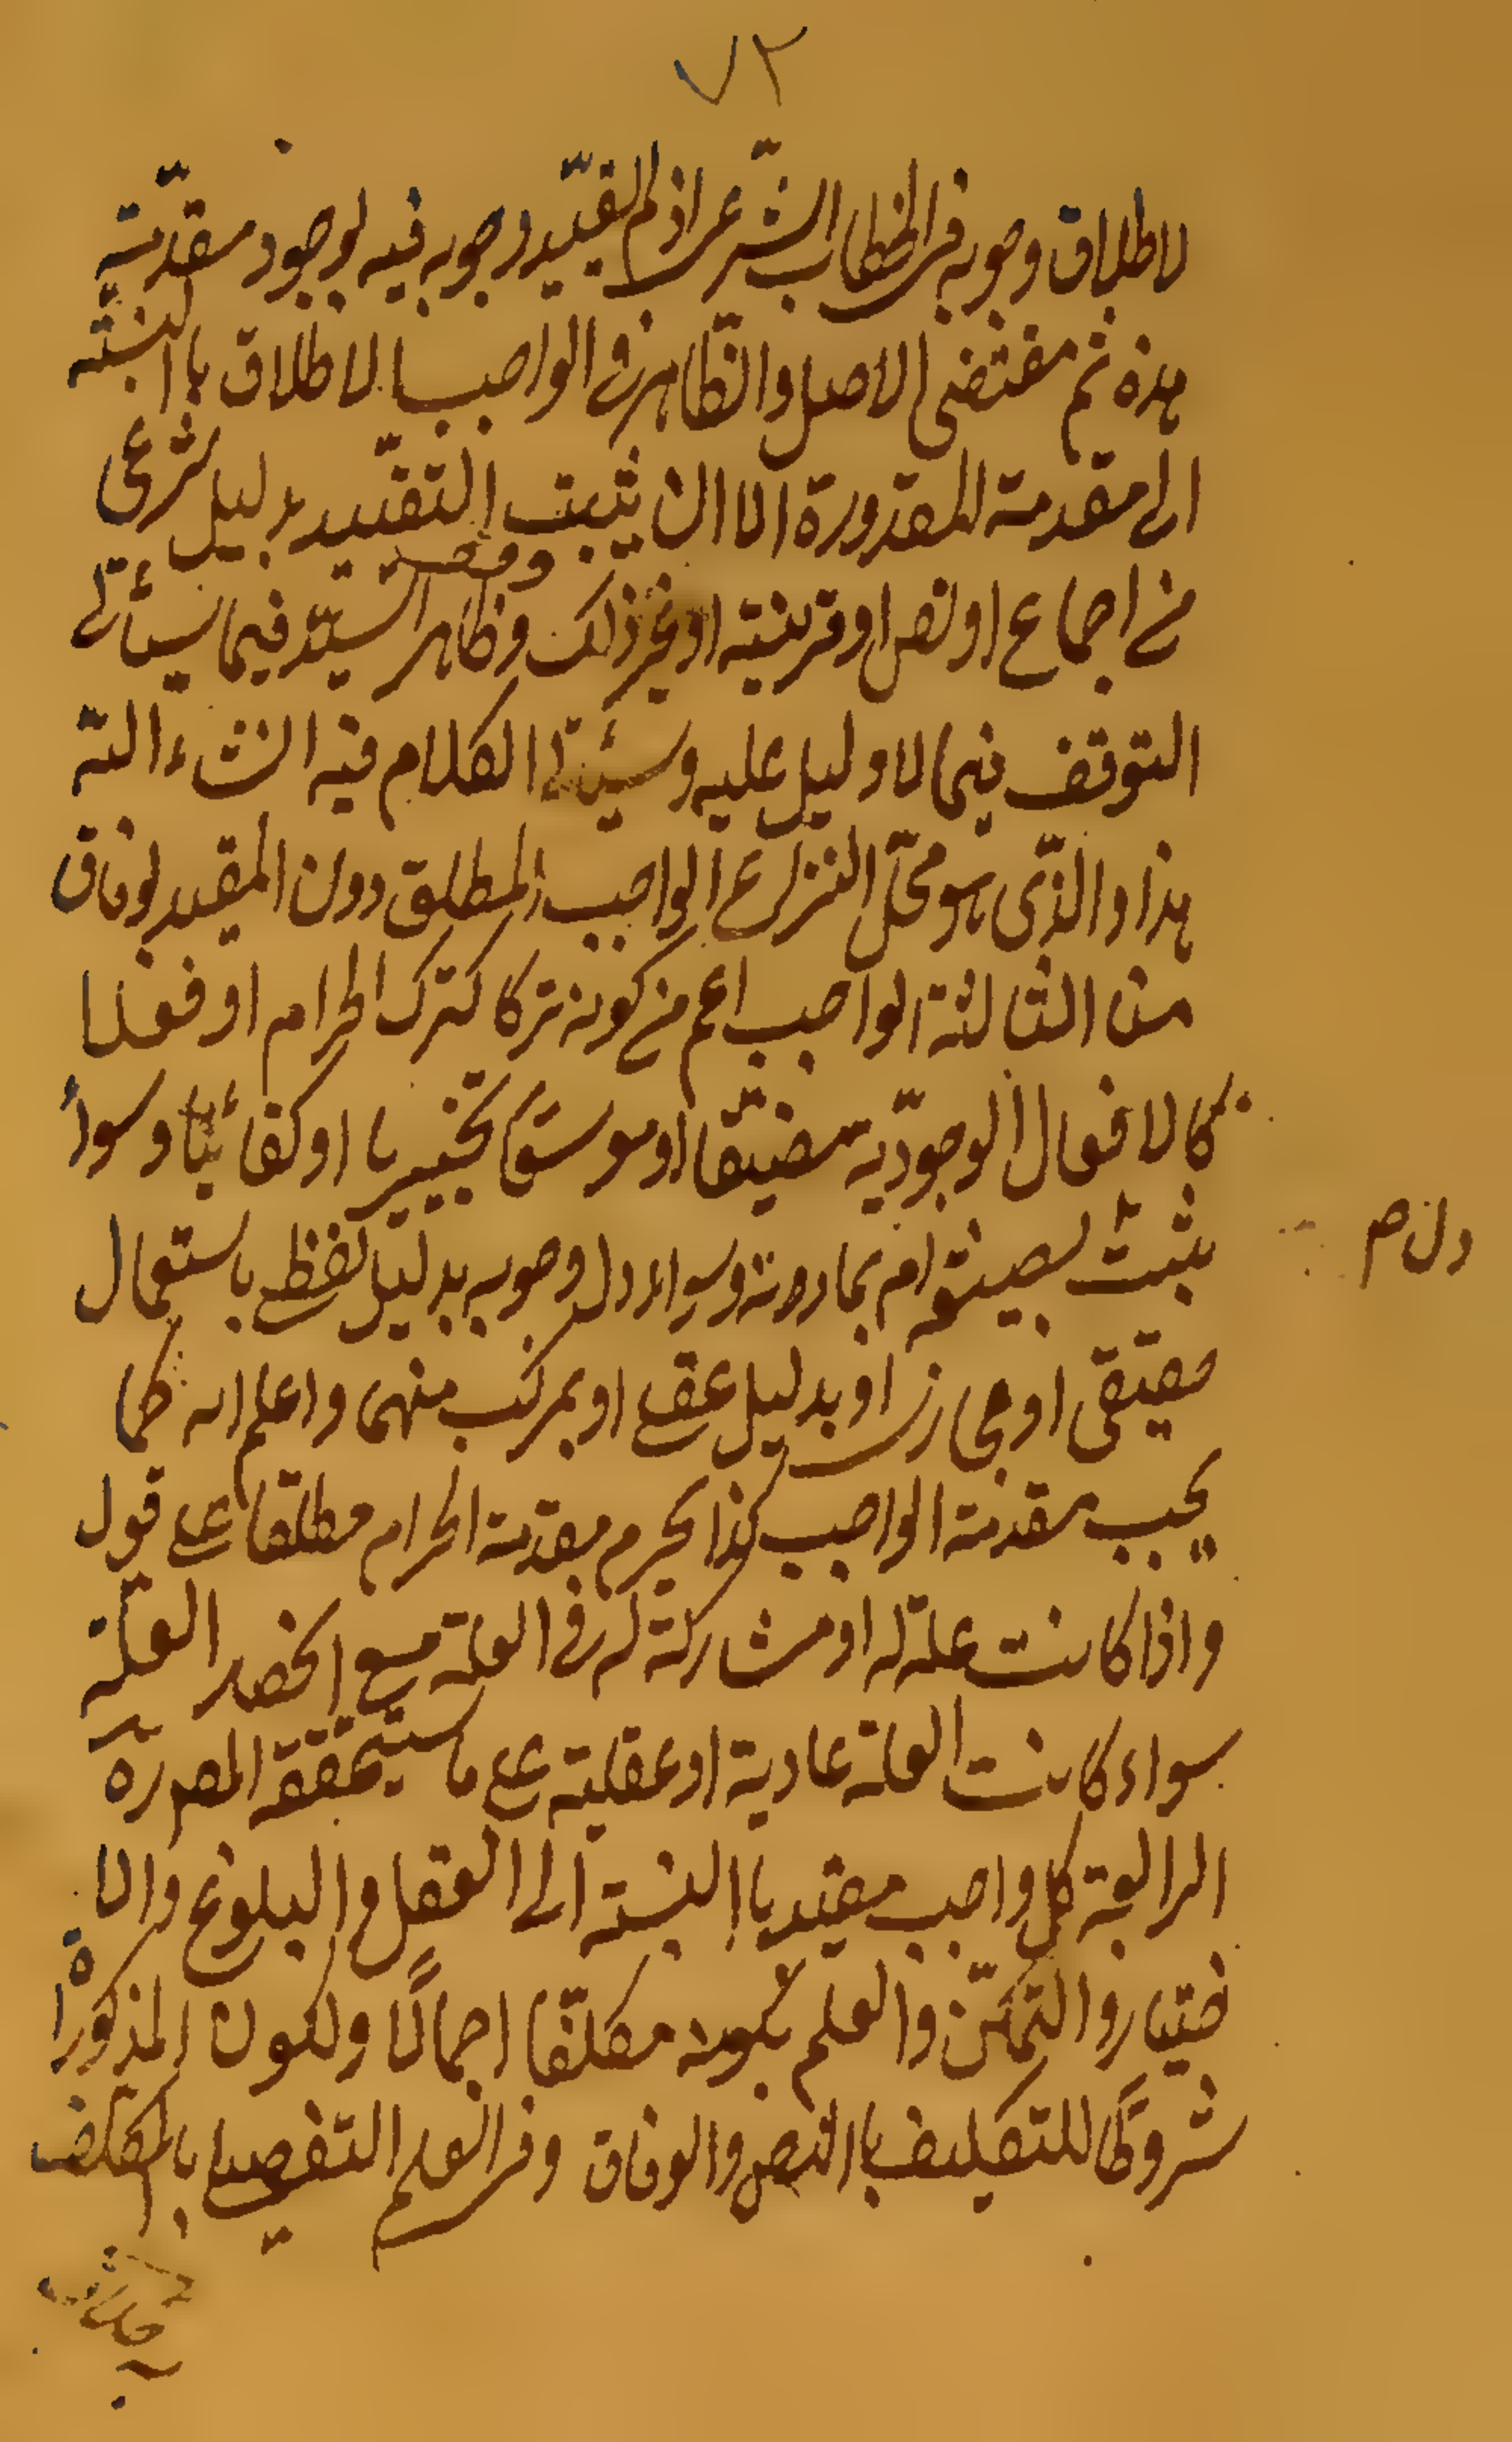 ٧٢
لاطلاق وجوبه فى الخطاب الشرعى اذ لم يقيّد وجوبه فيه بوجود مقدّمته
هذه ثم مقتضى الاصل والظاهر فى الواجب الاطلاق باالنسبته
الى مقدمته المقدورة الا ان يثبت التقييد بدليل شرعى
من اجماع او نص او قرينته او غير ذلك وظاهر السيّد فيما سيأتى
التوقف فيما لا دليل عليه وسيئتى الكلام فيه انشاء الله
هذا والذّى هو محّل النزاع الواجب المطلق دون المقيد لوفاق
منا الثالثة الواجب اعم من كونه تركا كترك الحرام او فعلا
كالافعال الوجوديّه مضيّقا او موسّعا تخييريا او كفائيّا وسواء
يثبت بصيغة ام بمادته وسواء دل وجوبه بدليل لفظى باستعمال
دل ص
حقيقى او مجازى او بدليل عقلى او بمركب منهما واعلم انه كما
يجب مقدمة الواجب كذا يحرم مقدمة الحرام مطلقا على قول
واذا كانت علة له او مشاركة له فى العلة مع انحصار العلّة
سواء كانت العلة عادية او عقلية على ما سيحققه المص ره
الرابعة كل واجب مقيد باالنسبة الى العقل والبلوغ والا
ختيار والتمكّن والعلم بكونه مكلّفا اجمالًا ولكون المذكوراة
شروطا للتكليف باالنص والوفاق وفى العلم التفصيلى بالمكلف